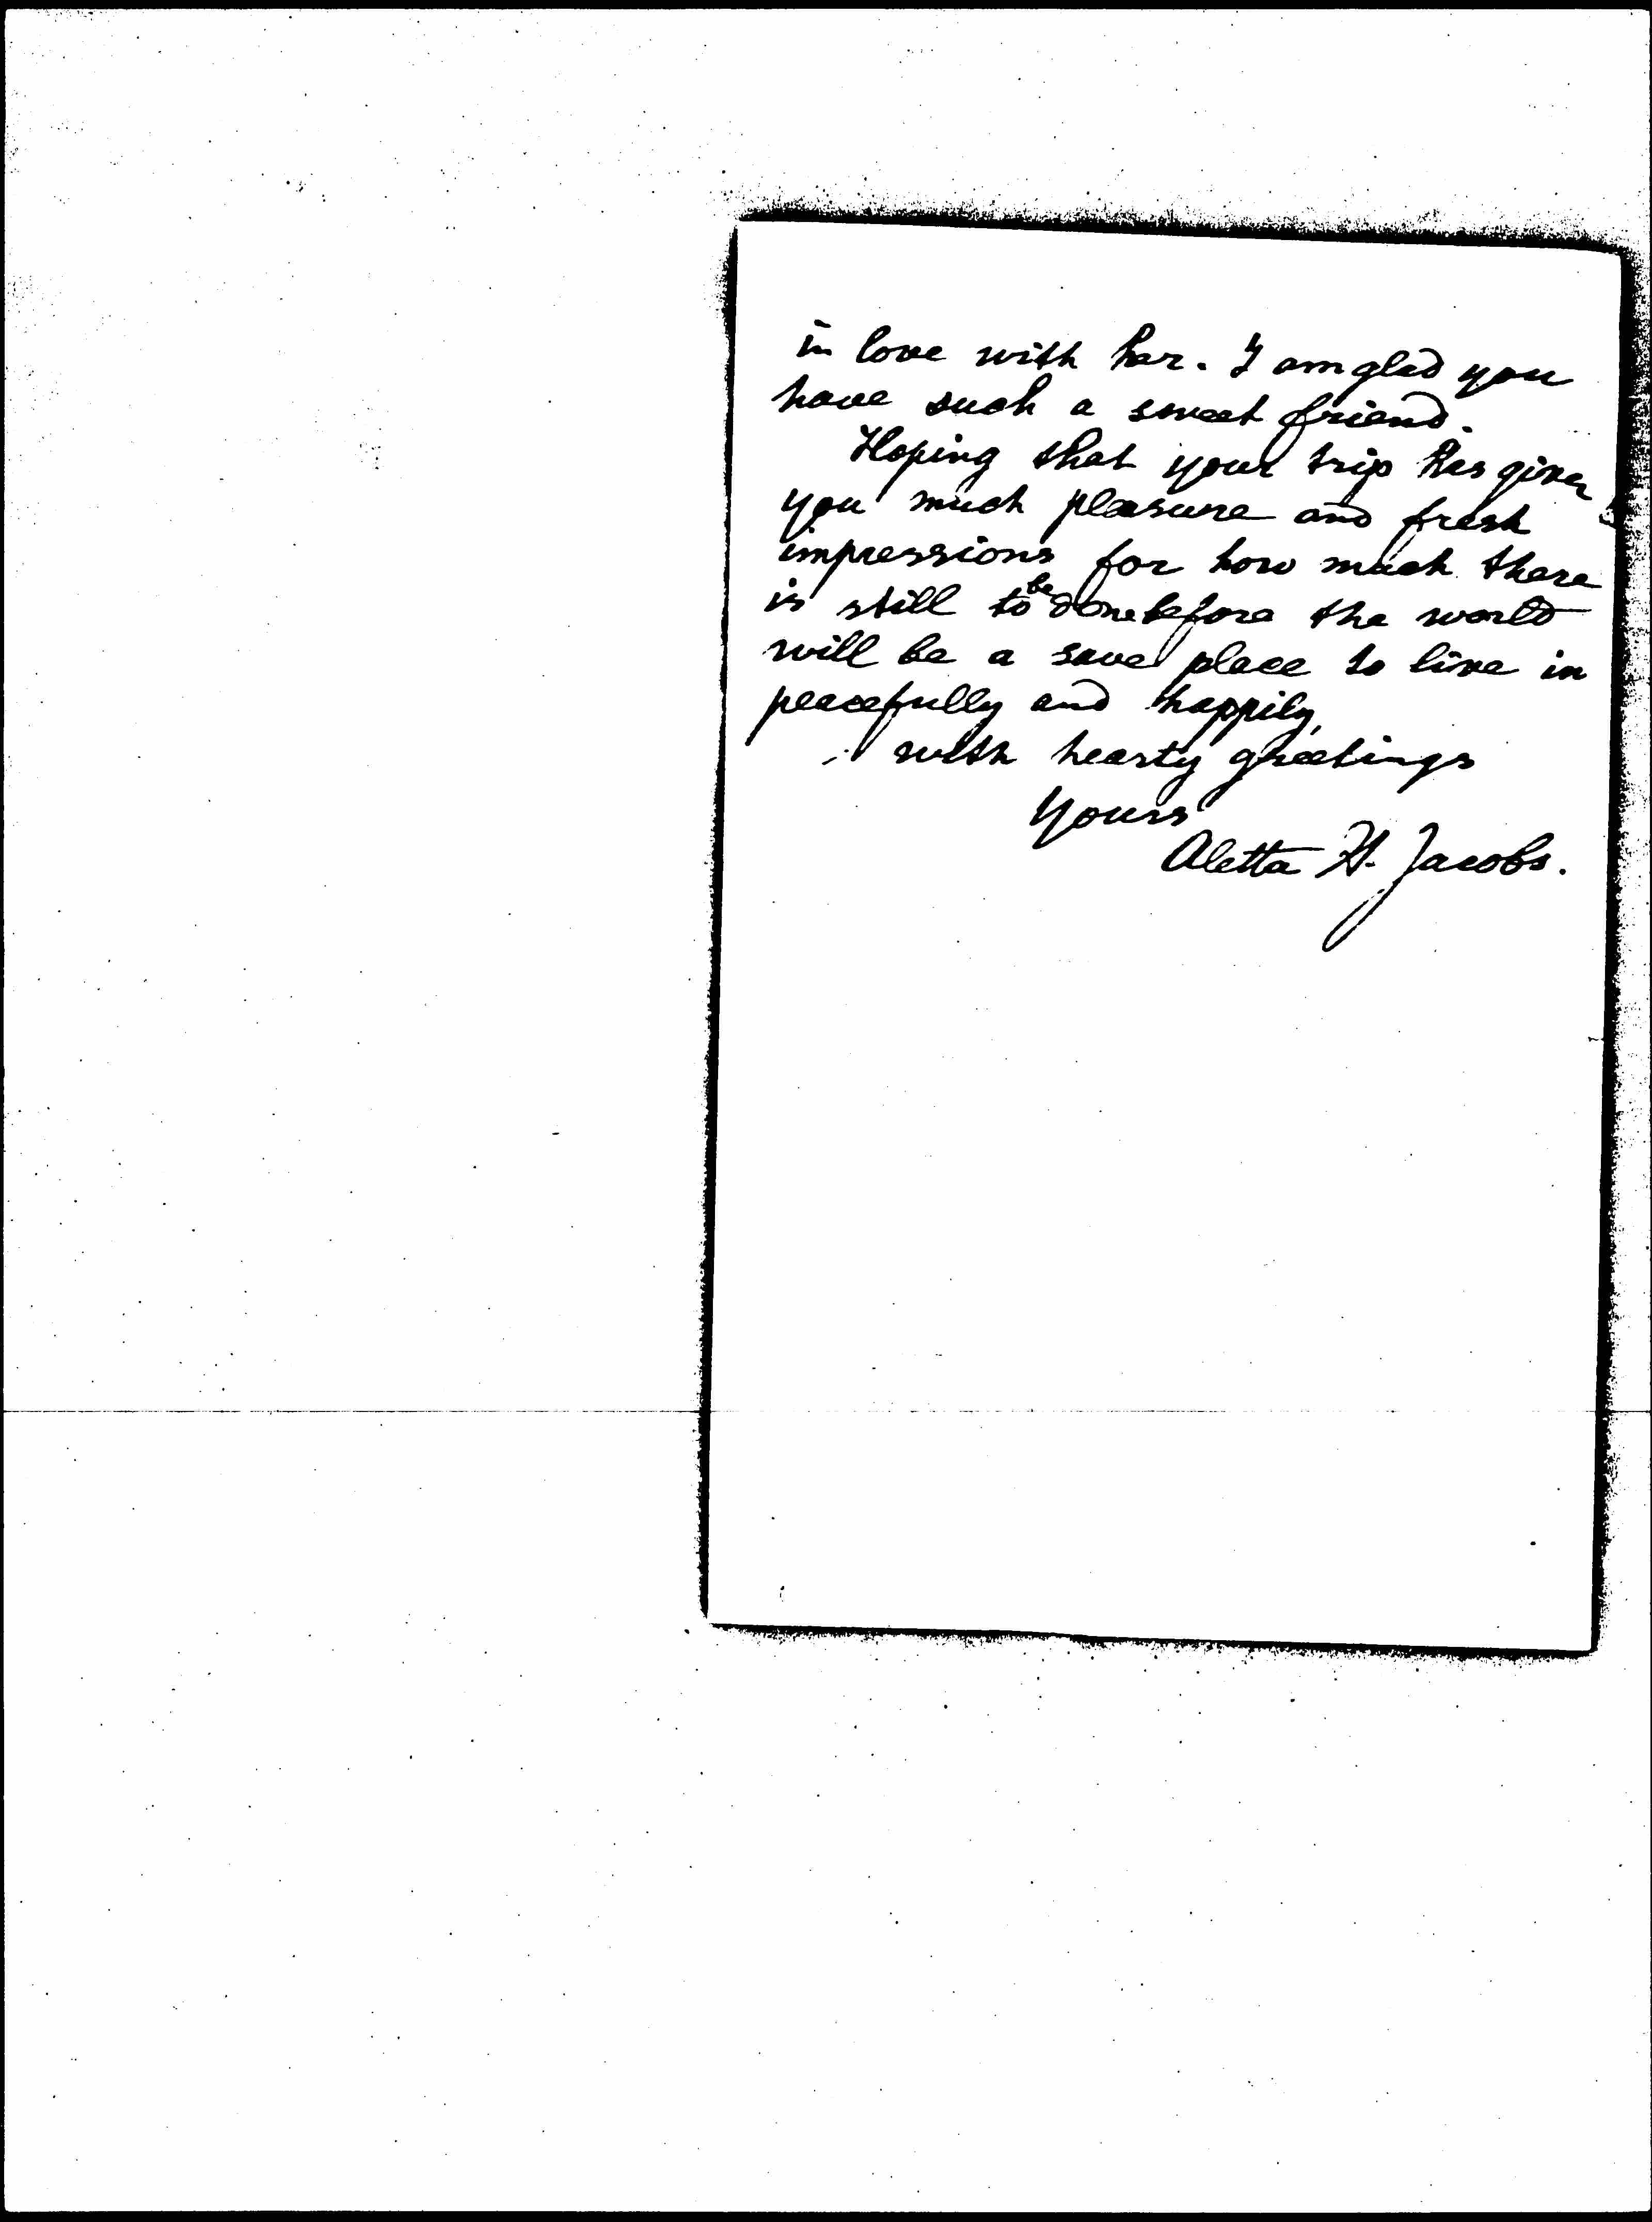 in love with her. I am glad you
have such a sweet friend.
Hoping that your trip has given
you much pleasure and fresh
impressions for how much there
is still to be done before the world
will be a save place to live in
peacefully and happily,
with hearty greetings
Yours
Aletta H. Jacobs.